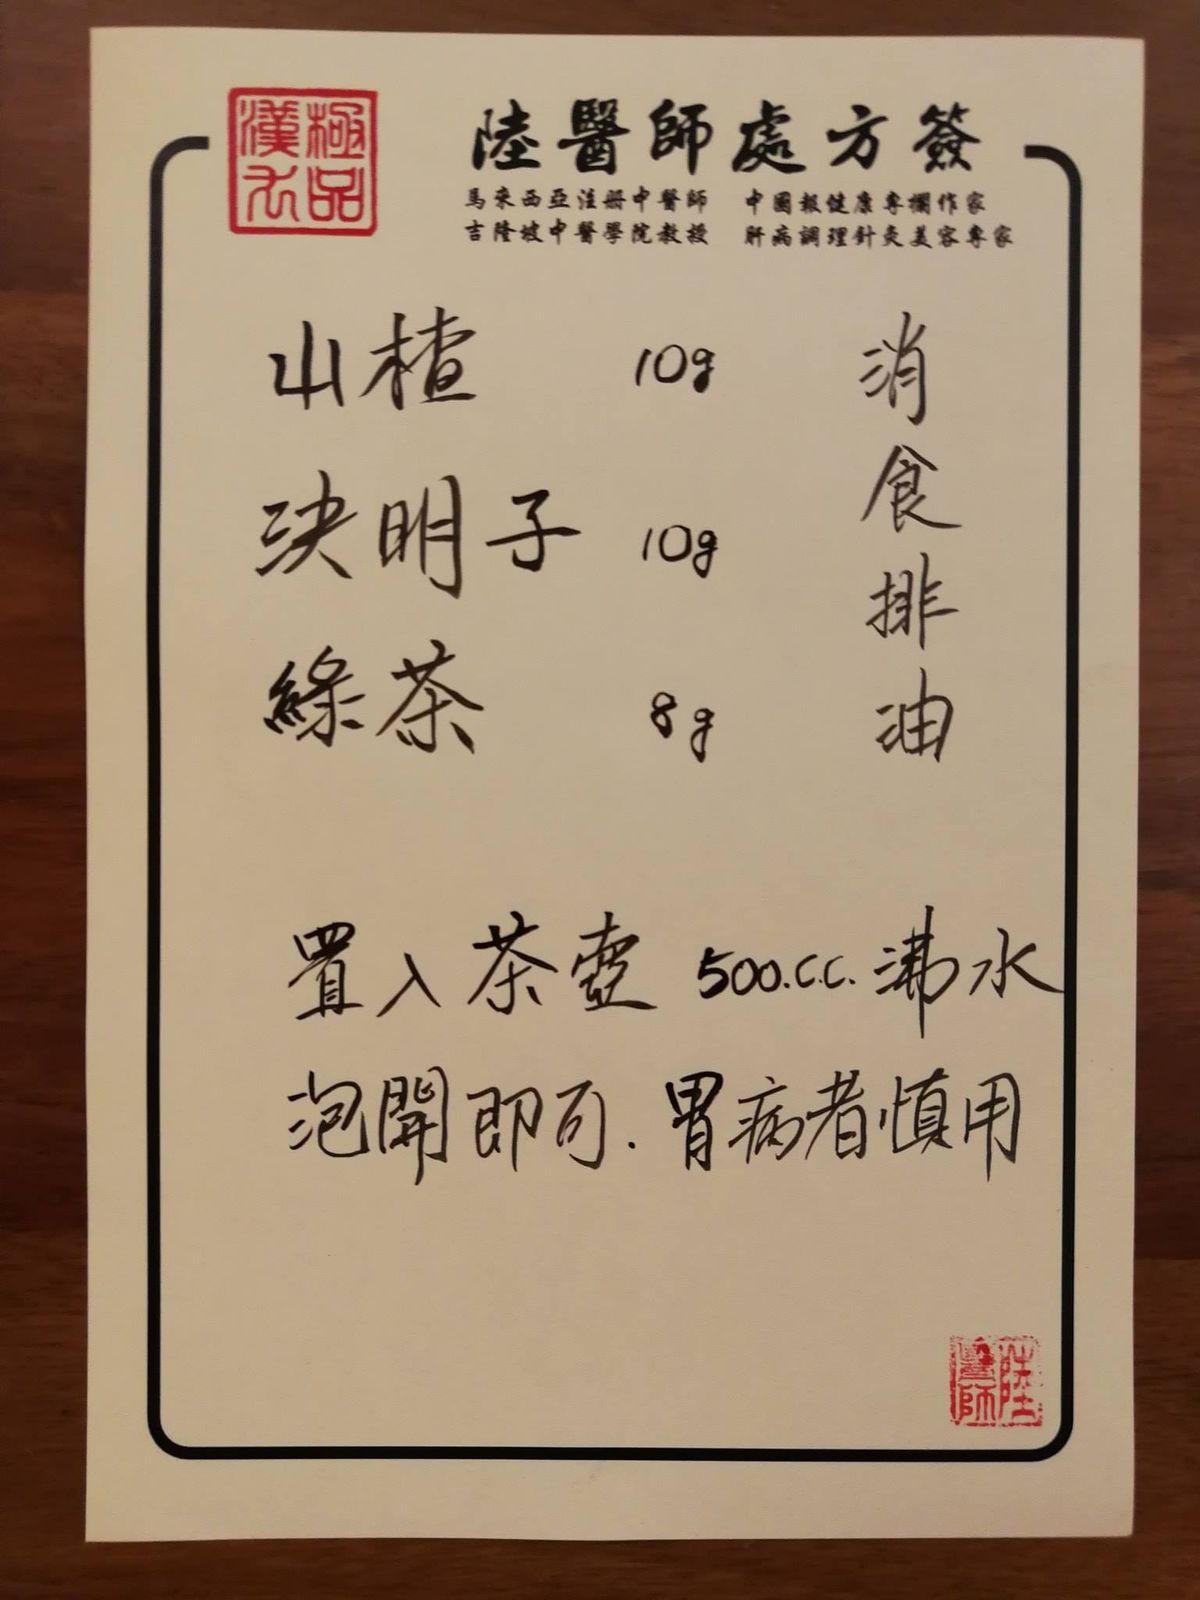 極品
漢方
陸醫師處方簽
馬來西亞注册中醫師 中國報健康專欄作家
吉隆坡中醫學院教授 肝病調理針灸美容專家
山楂 10g
決明子 10g
綠茶 8g
消食排油
置入茶壺 500.C.C. 沸水
泡開即可.胃病者慎用
陸醫師